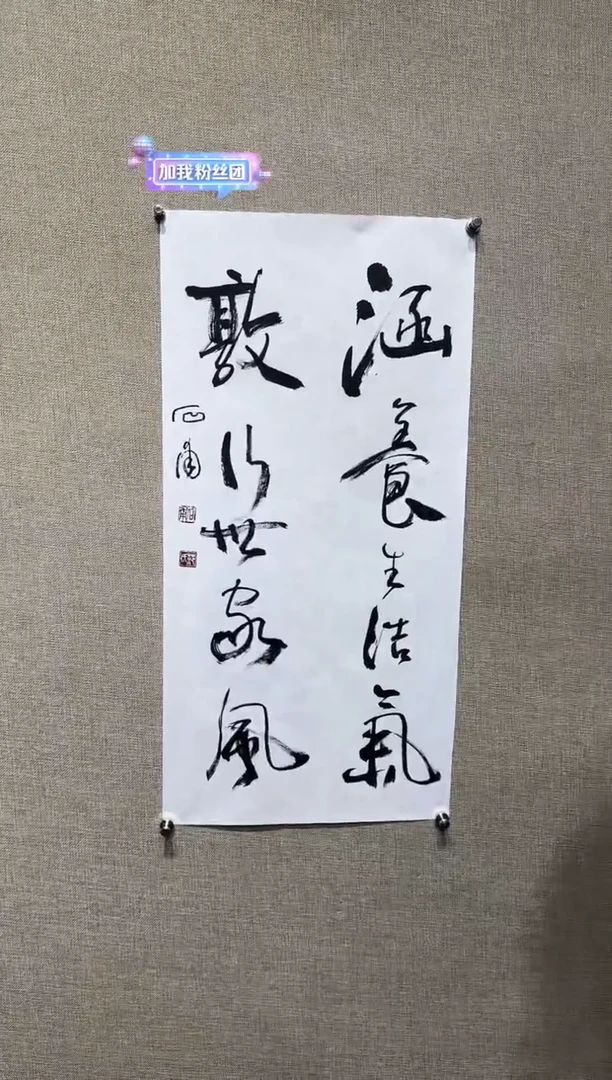 加我粉丝团
涵養生浩氣
敦行世家風